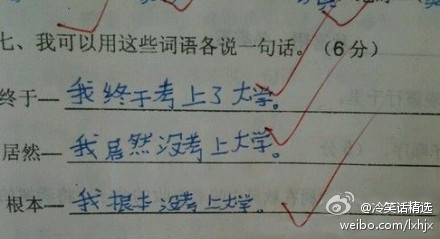 七、我可以用这些词语各说一句话。(6分)
终于—我终于考上了大学。
居然—我居然没考上大学。
根本—我根本没考上大学。
@冷笑话精选
weibo.com/lxhjx